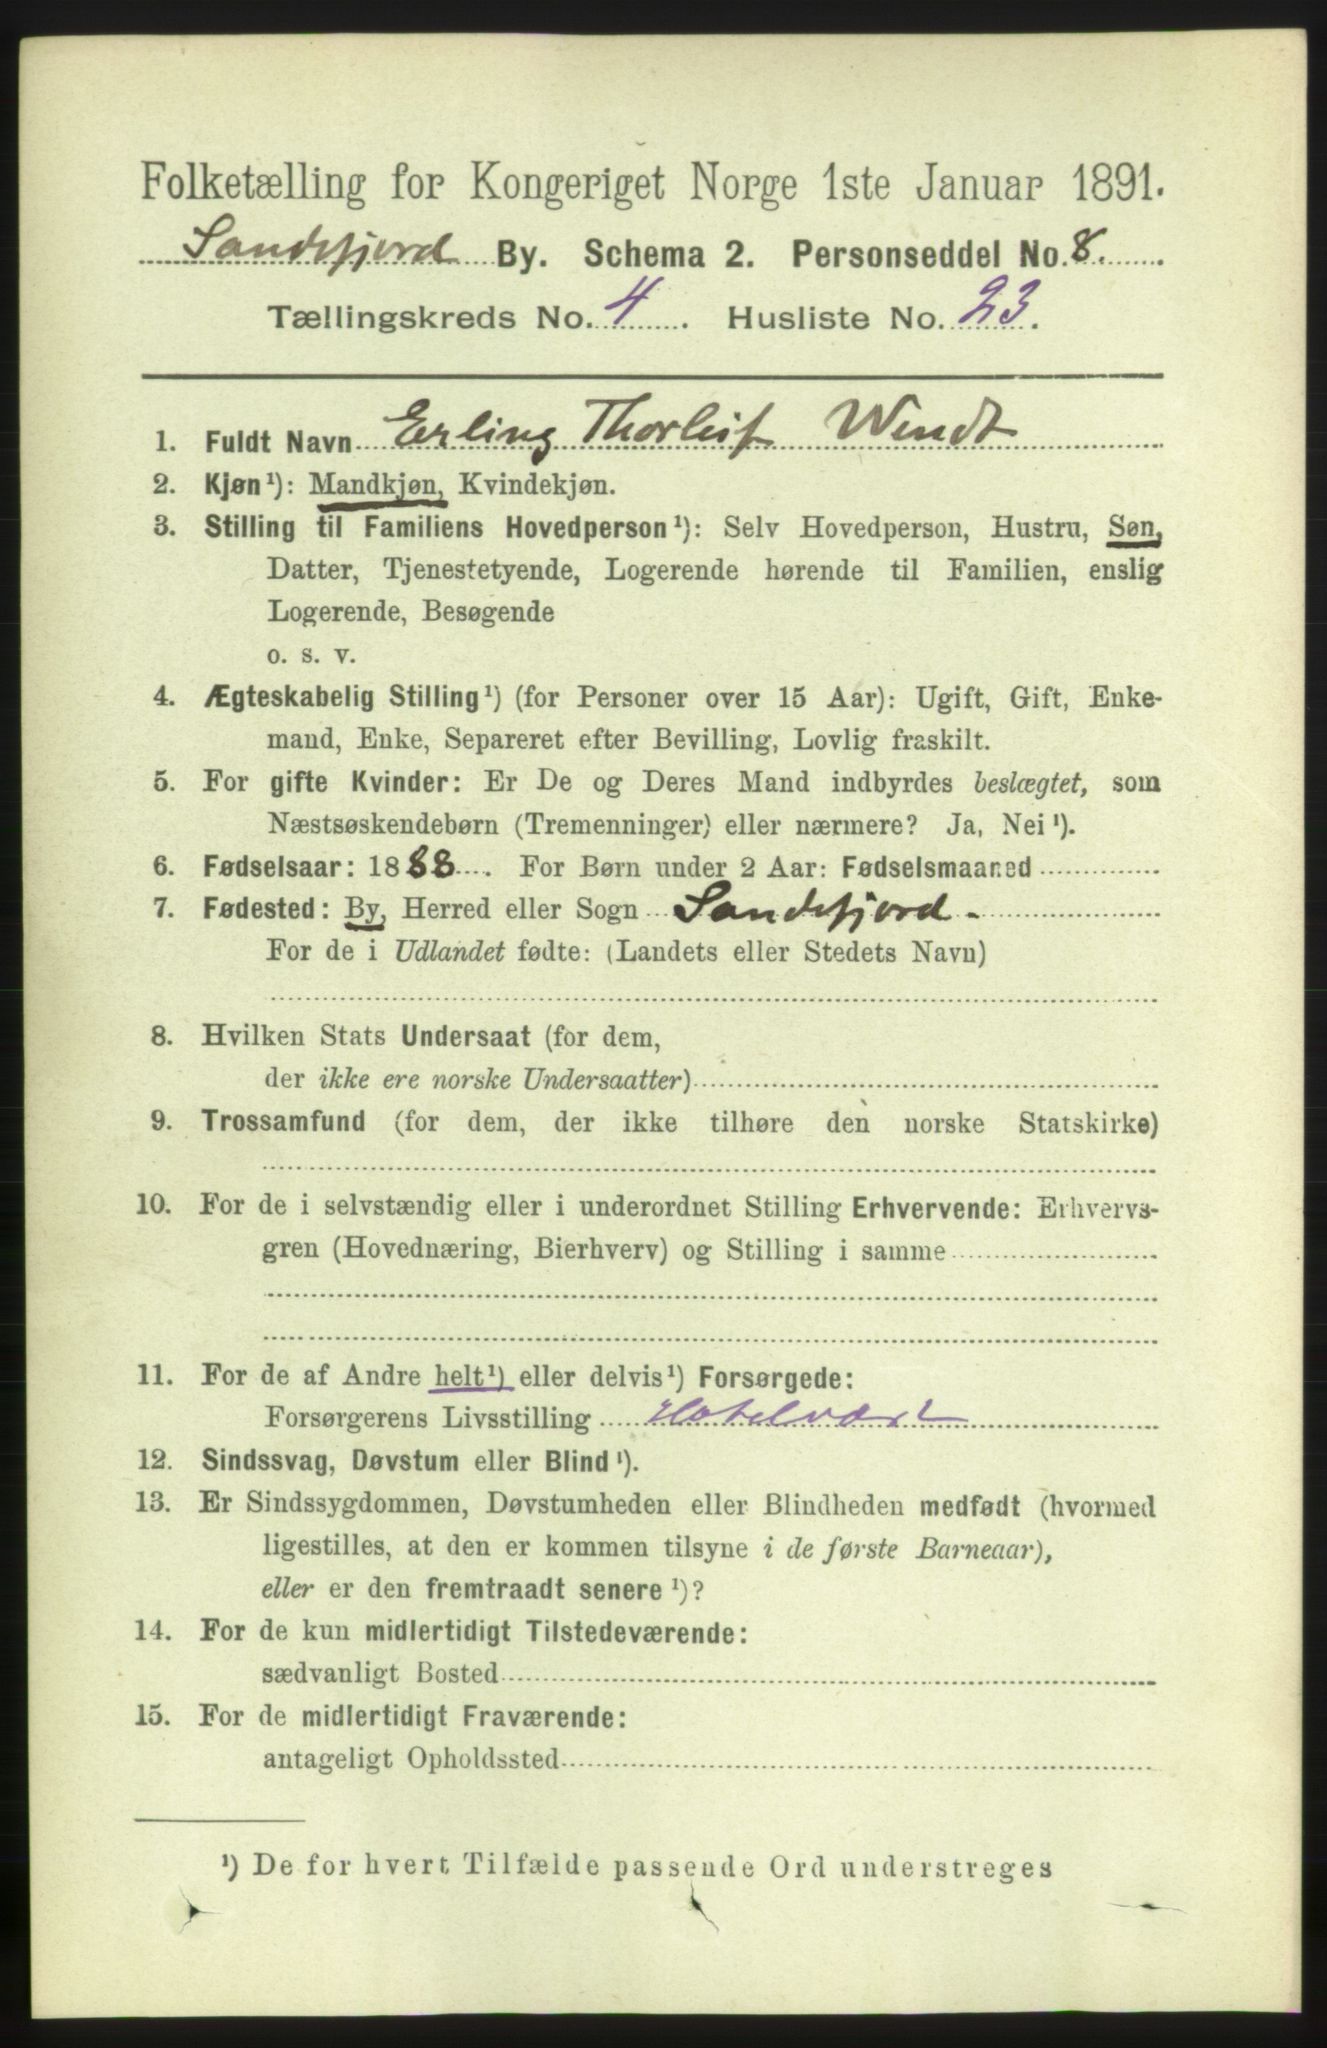 Folketælling for Kongeriget Norge 1ste Januar 1891.
Sandefjord By. Schema 2. Personseddel No. 8.
Tællingskreds No. 4. Husliste No. 23.
1. Fuldt Navn Erling Thorleif Wendt
2. Kjøn¹): Mandkjøn, Kvindekjøn.
3. Stilling til Familiens Hovedperson¹): Selv Hovedperson, Hustru, Søn,
Datter, Tjenestetyende, Logerende hørende til Familien, enslig
Logerende, Besøgende
o. s. v.
4. Ægteskabelig Stilling¹) (for Personer over 15 Aar): Ugift, Gift, Enke-
mand, Enke, Separeret efter Bevilling, Lovlig fraskilt.
5. For gifte Kvinder: Er De og Deres Mand indbyrdes beslægtet, som
Næstsøskendebørn (Tremenninger) eller nærmere? Ja, Nei¹).
6. Fødselsaar: 1888. For Børn under 2 Aar: Fødselsmaaned
7. Fødested: By, Herred eller Sogn Sandefjord.
For de i Udlandet fødte: (Landets eller Stedets Navn)
8. Hvilken Stats Undersaat (for dem,
der ikke ere norske Undersaatter)
9. Trossamfund (for dem, der ikke tilhøre den norske Statskirke)
10. For de i selvstændig eller i underordnet Stilling Erhvervende: Erhvervs-
gren (Hovednæring, Bierhverv) og Stilling i samme
11. For de af Andre helt¹) eller delvis¹) Forsørgede:
Forsørgerens Livsstilling Hotelvært
12. Sindssvag, Døvstum eller Blind¹).
13. Er Sindssygdommen, Døvstumheden eller Blindheden medfødt (hvormed
ligestilles, at den er kommen tilsyne i de første Barneaar),
eller er den fremtraadt senere¹)?
14. For de kun midlertidigt Tilstedeværende:
sædvanligt Bosted
15. For de midlertidigt Fraværende:
antageligt Opholdssted
¹) De for hvert Tilfælde passende Ord understreges